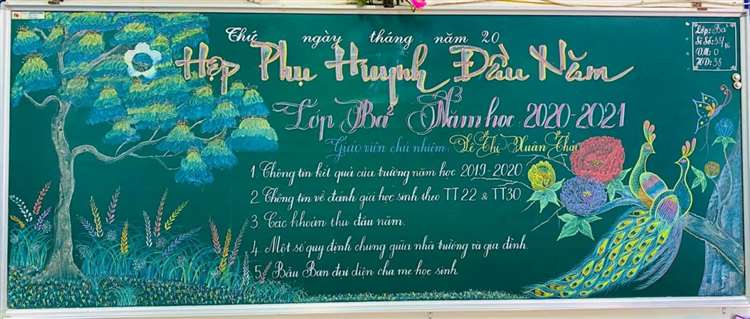 Thứ ngày tháng năm 20
Họp Phụ Huynh Đầu Năm
Lớp Ba² Năm học 2020-2021
Giáo viên chủ nhiệm: Lê Thị Xuân
1 Thông tin kết quả của trường năm học 2019-2020
2 Thông tin về đánh giá học sinh theo TT 22 & TT30
3 Các khoản thu đầu năm.
4 Một số quy định chung giữa nhà trường và gia đình.
5 Bầu Ban đại diện cha mẹ học sinh.
Lớp: Ba²